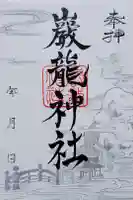 奉拝
巖龍神社
年月日